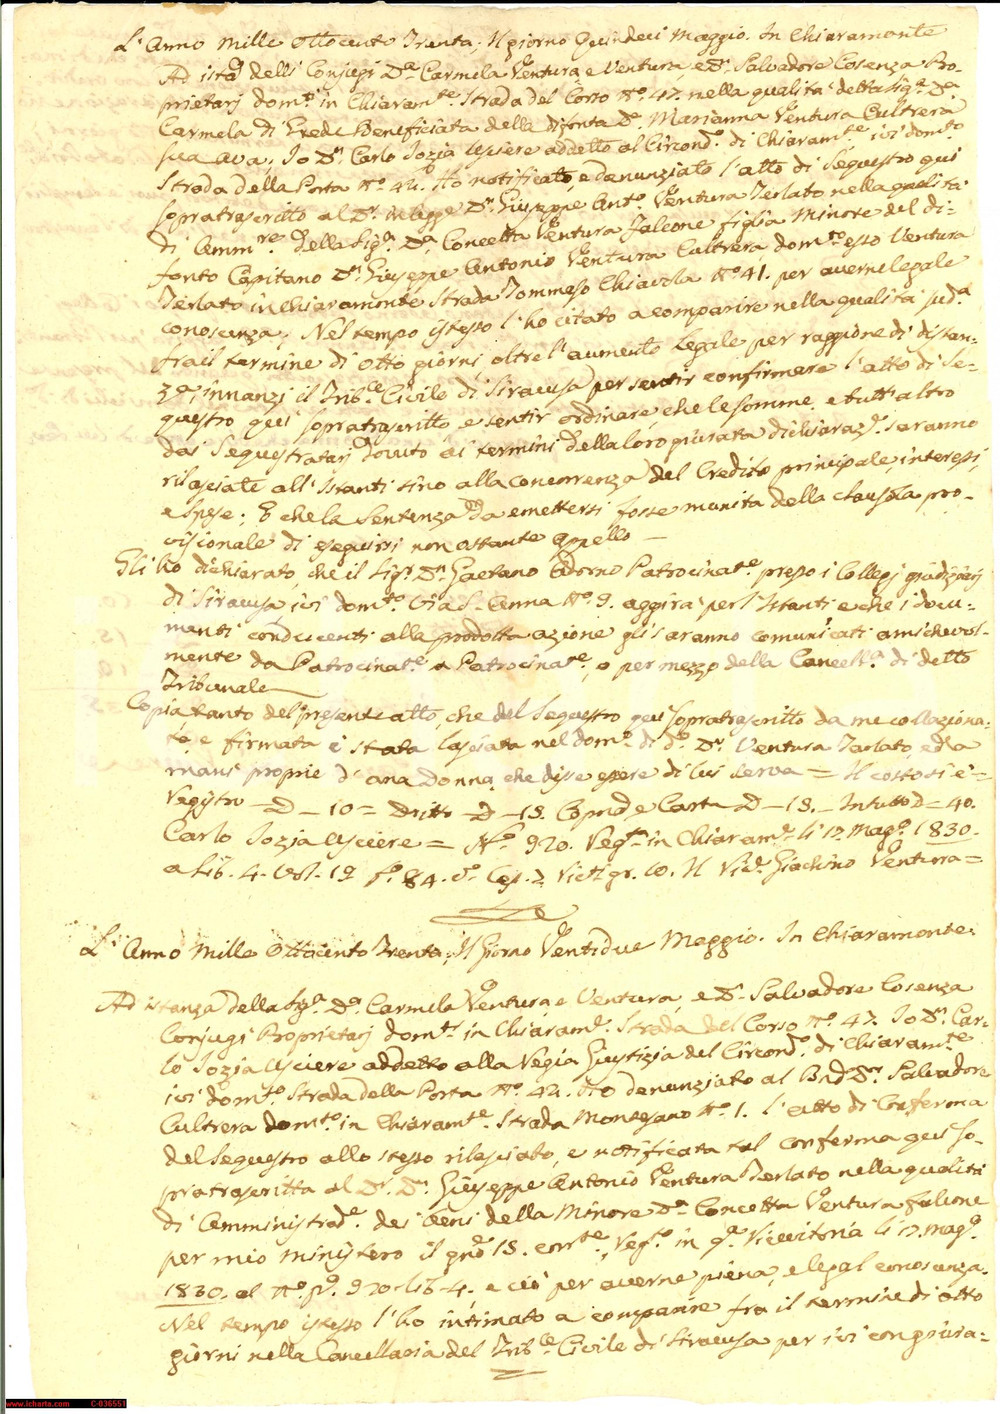 L'Anno Mille Ottocento Trenta. Il giorno Quindeci Maggio. In Chiaramonte
Ad istãa delli Conjugi D.a Carmela Ventura, e Ventura, e D.n Salvadore Cosenza Pro-
prietarj dom.ti in Chiaram.te Strada del Corso N.o 47. nella qualità detta Sig.a D.a
Carmela di Erede Beneficiata della difonta D.a Marianna Ventura Cultrera
sua ava; Io D.n Carlo Iozia Usciere addetto al Circond.o di Chiaram.te ivi dom.to
Strada della Porta N.o 42. Ho notificato, e danunziato l'atto di Sequestro qui
sopratrascritto al D.r in legge D.n Giuseppe Ant.o Ventura Terlato nella qualità
di Amm.re della Sig.a D.a Concetta Ventura Falcone figlia Minore del di-
fonto Capitano D.n Giuseppe Antonio Ventura Cultrera dom.to esso Ventura
Terlato in Chiaramonte Strada Tommaso Chiavola N.o 41. per averne legale
conoscenza; Nel tempo istesso l'ho citato a comparire nella qualità sud.a
fra il termine di otto giorni, oltre l'aumento legale per raggione di distan-
za, innanzi il Trib.le Civile di Siracusa per sentir confirmare l'atto di Se-
questro qui sopratrascritto, e sentir ordinare, che le somme, e tutt'altro
dai Sequestratarj dovuto ai termini della loro giurata dichiaraz.e saranno
rilasciate all'Istanti sino alla concorrenza del Credito principale, interessi,
e spese; E che la Sentenza da emettersi fosse munita della clausola pro-
visionale di eseguirsi non ostante appello —
Gli ho dichiarato, che il Sig.r D.n Gaetano Adorno Patrocinat.e presso i Collegj giudiziarj
di Siracusa ivi dom.to Via S. Anna N.o 9. aggirà per l'Istanti e che i docu-
menti conducenti alla prodotta azione gli saranno comunicati amichevol-
mente da Patrocinat.e a Patrocinat.e, o per mezzo della Cancell.a di detto
Tribunale
Copia tanto del presente atto, che del Sequestro qui sopratrascritto da me collaziona-
ta, e firmata è stata lasciata nel dom.o di d.o D.r Ventura Terlato, ed a
mani proprie di una Donna, che disse essere di lui serva = Il costo si è =
Regstro — D — 10 = dritto — D — 15. Copia, e Carta D — 15. — In tutto D = 40.
Carlo Iozia Usciere = N.o 920. Reg.to in Chiaram.te li 17. Mag.o 1830.
a Lib. 4. Vol. 19 f.o 84. v.o Cas. 2 gr. 10. Il Giachino Ventura =
L'Anno Mille Ottocento Trenta; Il Giorno Ventidue Maggio. In Chiaramonte.
Ad istanza della Sig.a D.a Carmela Ventura, e Ventura, e D.n Salvadore Cosenza
Conjugi Proprietarj dom.ti in Chiaram.te Strada del Corso N.o 47. Io D.n Car-
lo Iozia Usciere addetto alla Regia Giustizia del Circond.o di Chiaram.te
ivi dom.to Strada della Porta N.o 42. Ho denunziato al D.n Salvadore
Cultrera dom.to in Chiaram.te Strada Montesano N.o 1. l'atto di Conferma
del Sequestro allo stesso rilasciato, e notificata tal conferma qui so-
pratrascritta al D.r D.n Giuseppe Antonio Ventura Terlato nella qualità
di Amministrad.e dei beni della Minore D.a Concetta Ventura Falcone
per mio ministero il 15. corr.te, Reg.to in li 17. Mag.o
1830. al N.o 920. Lib. 4. e ciò per averne piena, e legal conoscenza.
Nel tempo istesso l'ho intimato a comparire fra il termine di otto
giorni nella Cancellaria del Trib.le Civile di Siracusa per ivi con giura-
www.icharta.com C-036551